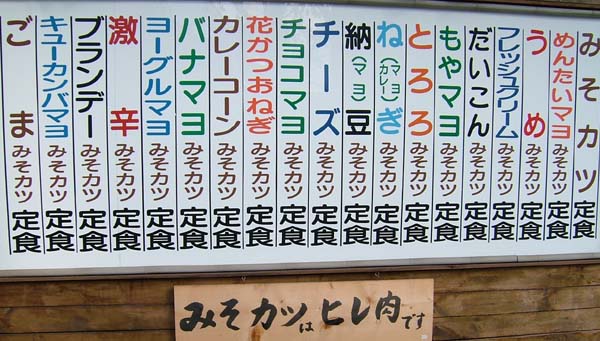 みそカツ定食
めんたいマヨみそカツ定食
うめみそカツ定食
フレッシュクリームみそカツ定食
だいこんみそカツ定食
もやマヨみそカツ定食
とろろみそカツ定食
ねぎ(マヨカレー)みそカツ定食
納(マヨ)豆みそカツ定食
チーズみそカツ定食
チョコマヨみそカツ定食
花かつおねぎみそカツ定食
カレーコーンみそカツ定食
バナマヨみそカツ定食
ヨーグルマヨみそカツ定食
激辛みそカツ定食
ブランデーみそカツ定食
キューカンバマヨみそカツ定食
ごまみそカツ定食
みそカツはヒレ肉です